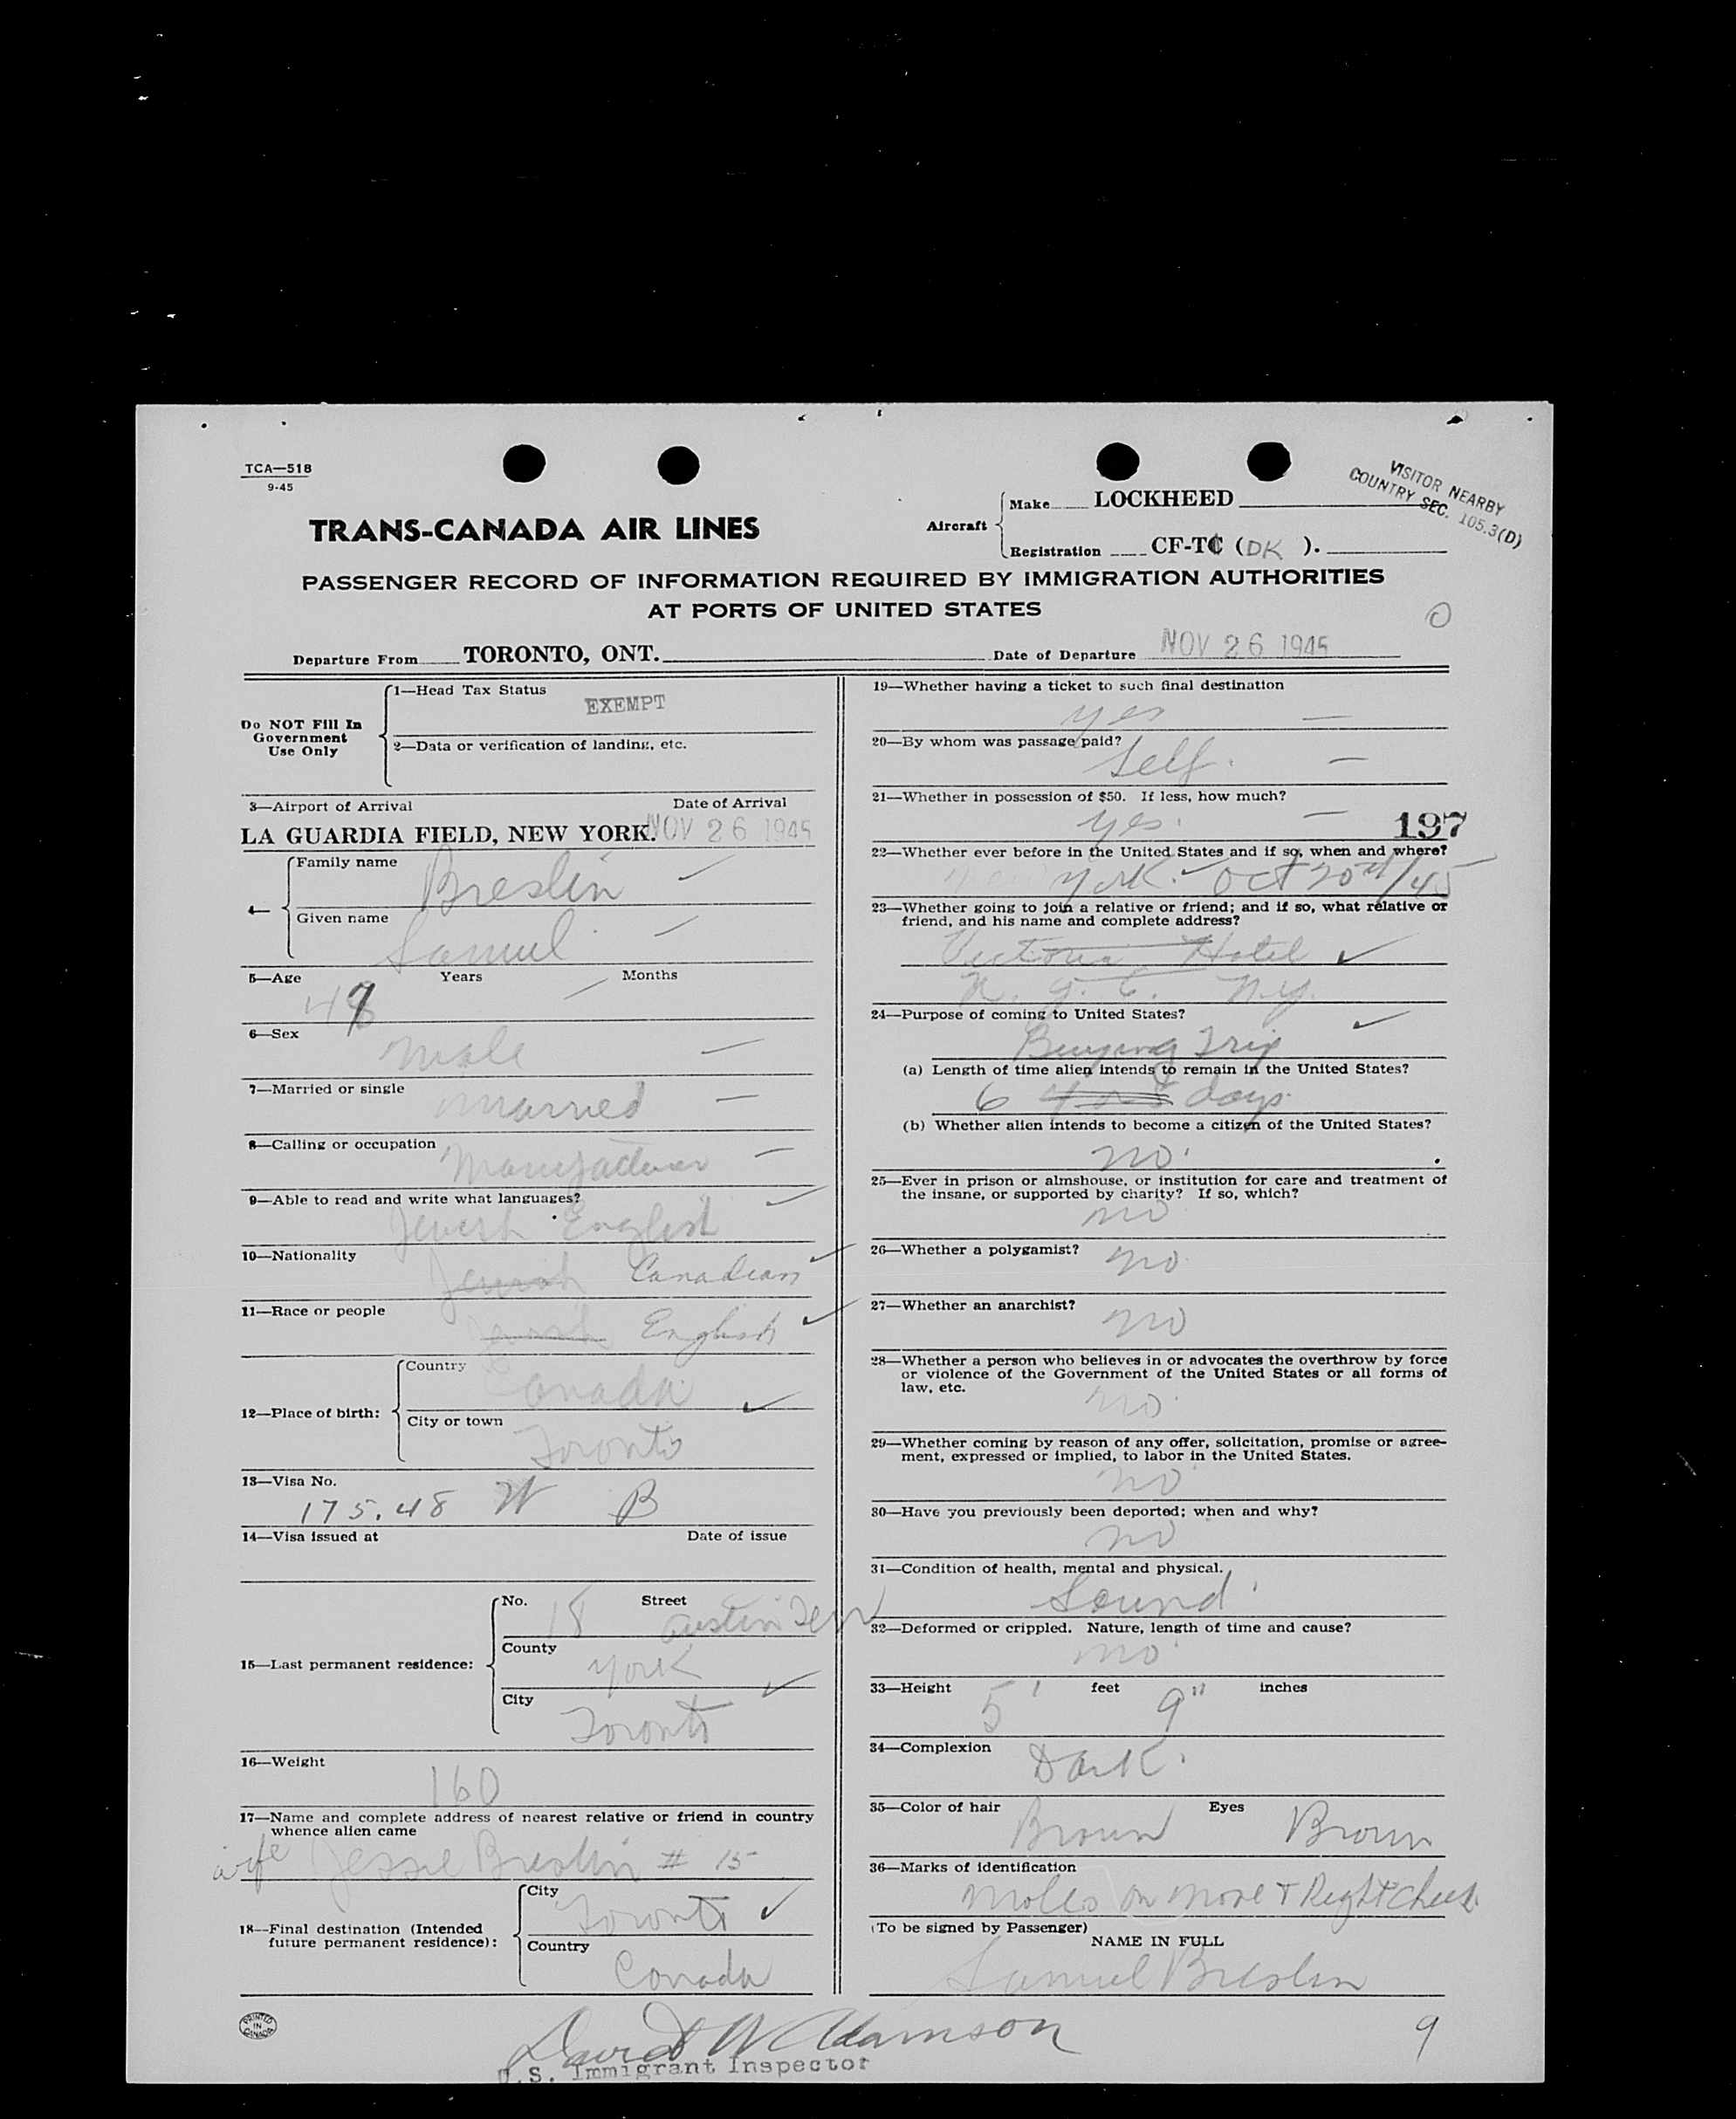 TCA—518
9-45
TRANS-CANADA AIR LINES
Aircraft
Make LOCKHEED
Registration CF-TC (DK ).
VISITOR NEARBY
COUNTRY SEC. 105.3(D)
PASSENGER RECORD OF INFORMATION REQUIRED BY IMMIGRATION AUTHORITIES
AT PORTS OF UNITED STATES
Departure From TORONTO, ONT. Date of Departure NOV 26 1945
Do NOT Fill In
Government
Use Only
1—Head Tax Status
EXEMPT
2—Data or verification of landing, etc.
3—Airport of Arrival Date of Arrival
LA GUARDIA FIELD, NEW YORK. NOV 26 1945
4—
Family name
Breslin
Given name
Samuel
5—Age Years Months
47
6—Sex
Male
7—Married or single
married
8—Calling or occupation
Manufacturer
9—Able to read and write what languages?
Jewish English
10—Nationality
Jewish Canadian
11—Race or people
Jewish English
12—Place of birth:
Country
Canada
City or town
Toronto
13—Visa No.
175.48 W B
14—Visa issued at Date of issue
15—Last permanent residence:
No. Street
18 Austin Terr
County
York
City
Toronto
16—Weight
160
17—Name and complete address of nearest relative or friend in country
whence alien came
wife Jessie Breslin # 15
18—Final destination (Intended
future permanent residence):
City
Toronto
Country
Canada
19—Whether having a ticket to such final destination
yes
20—By whom was passage paid?
Self.
21—Whether in possession of $50. If less, how much?
yes.
197
22—Whether ever before in the United States and if so, when and where?
New York. Oct 20th/45
23—Whether going to join a relative or friend; and if so, what relative or
friend, and his name and complete address?
Victoria Hotel
N.Y.C. N.Y.
24—Purpose of coming to United States?
Buying Trip
(a) Length of time alien intends to remain in the United States?
6 days.
(b) Whether alien intends to become a citizen of the United States?
no.
25—Ever in prison or almshouse, or institution for care and treatment of
the insane, or supported by charity? If so, which?
no
26—Whether a polygamist?
no.
27—Whether an anarchist?
no
28—Whether a person who believes in or advocates the overthrow by force
or violence of the Government of the United States or all forms of
law, etc.
no.
29—Whether coming by reason of any offer, solicitation, promise or agree-
ment, expressed or implied, to labor in the United States.
no
30—Have you previously been deported; when and why?
no
31—Condition of health, mental and physical.
Sound.
32—Deformed or crippled. Nature, length of time and cause?
no
33—Height feet inches
5' 9"
34—Complexion
Dark.
35—Color of hair Eyes
Brown Brown
36—Marks of identification
Moles on nose + Right cheek.
(To be signed by Passenger)
NAME IN FULL
Samuel Breslin
PRINTED
IN
CANADA
David W Adamson
U.S. Immigrant Inspector
9